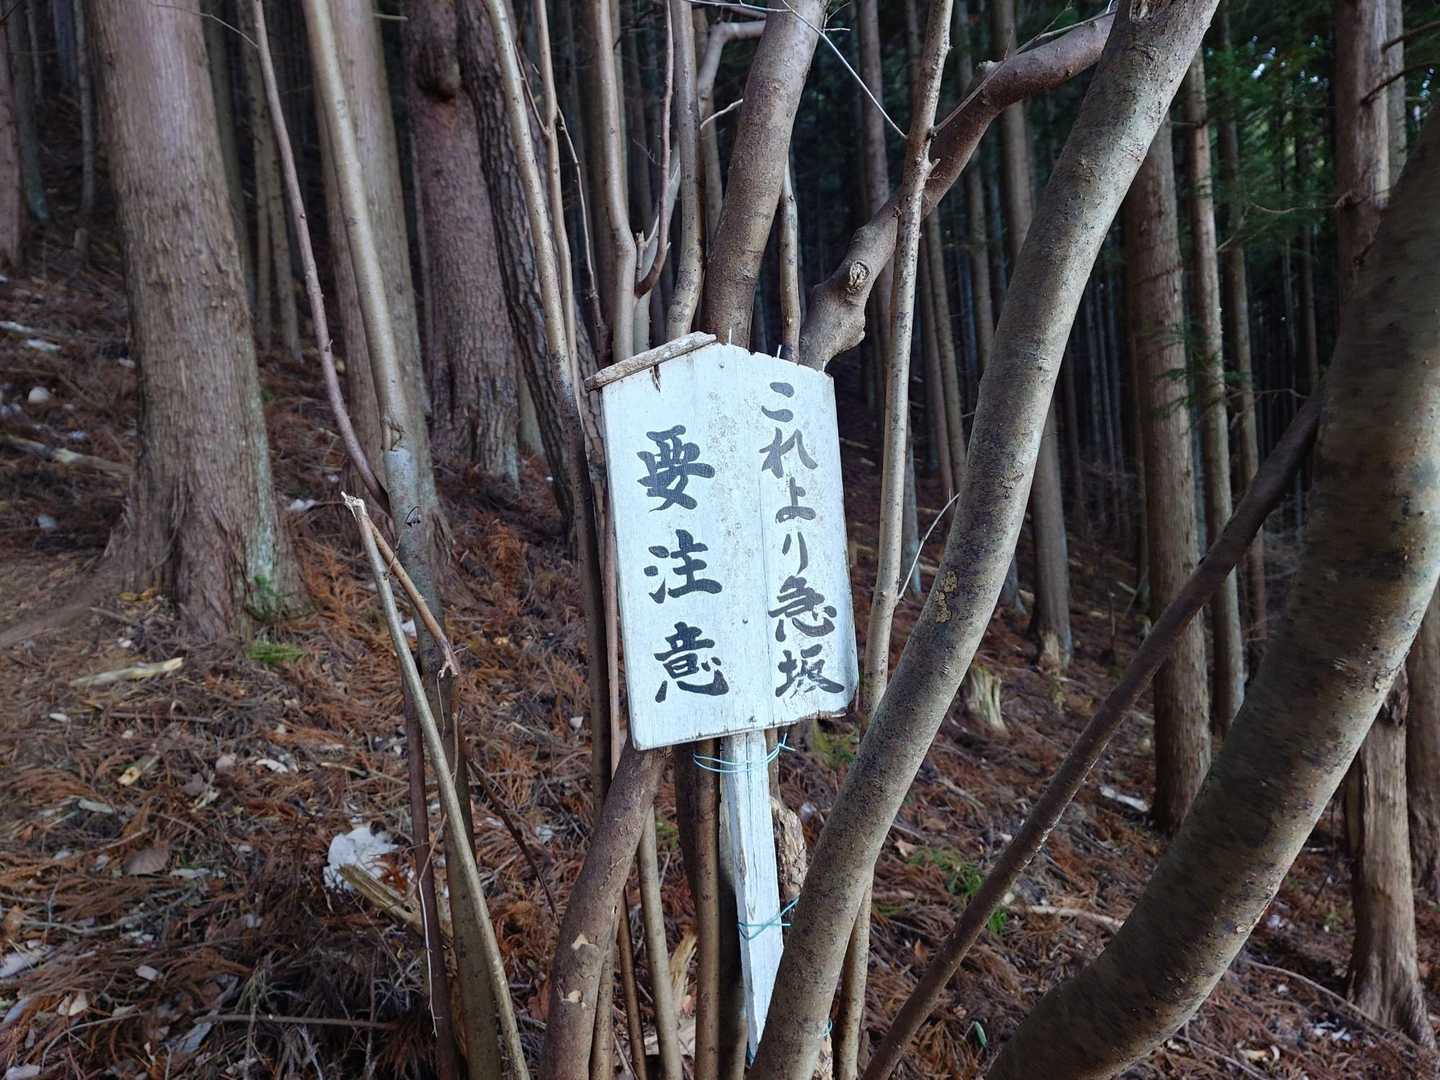 これより急坂
要注意